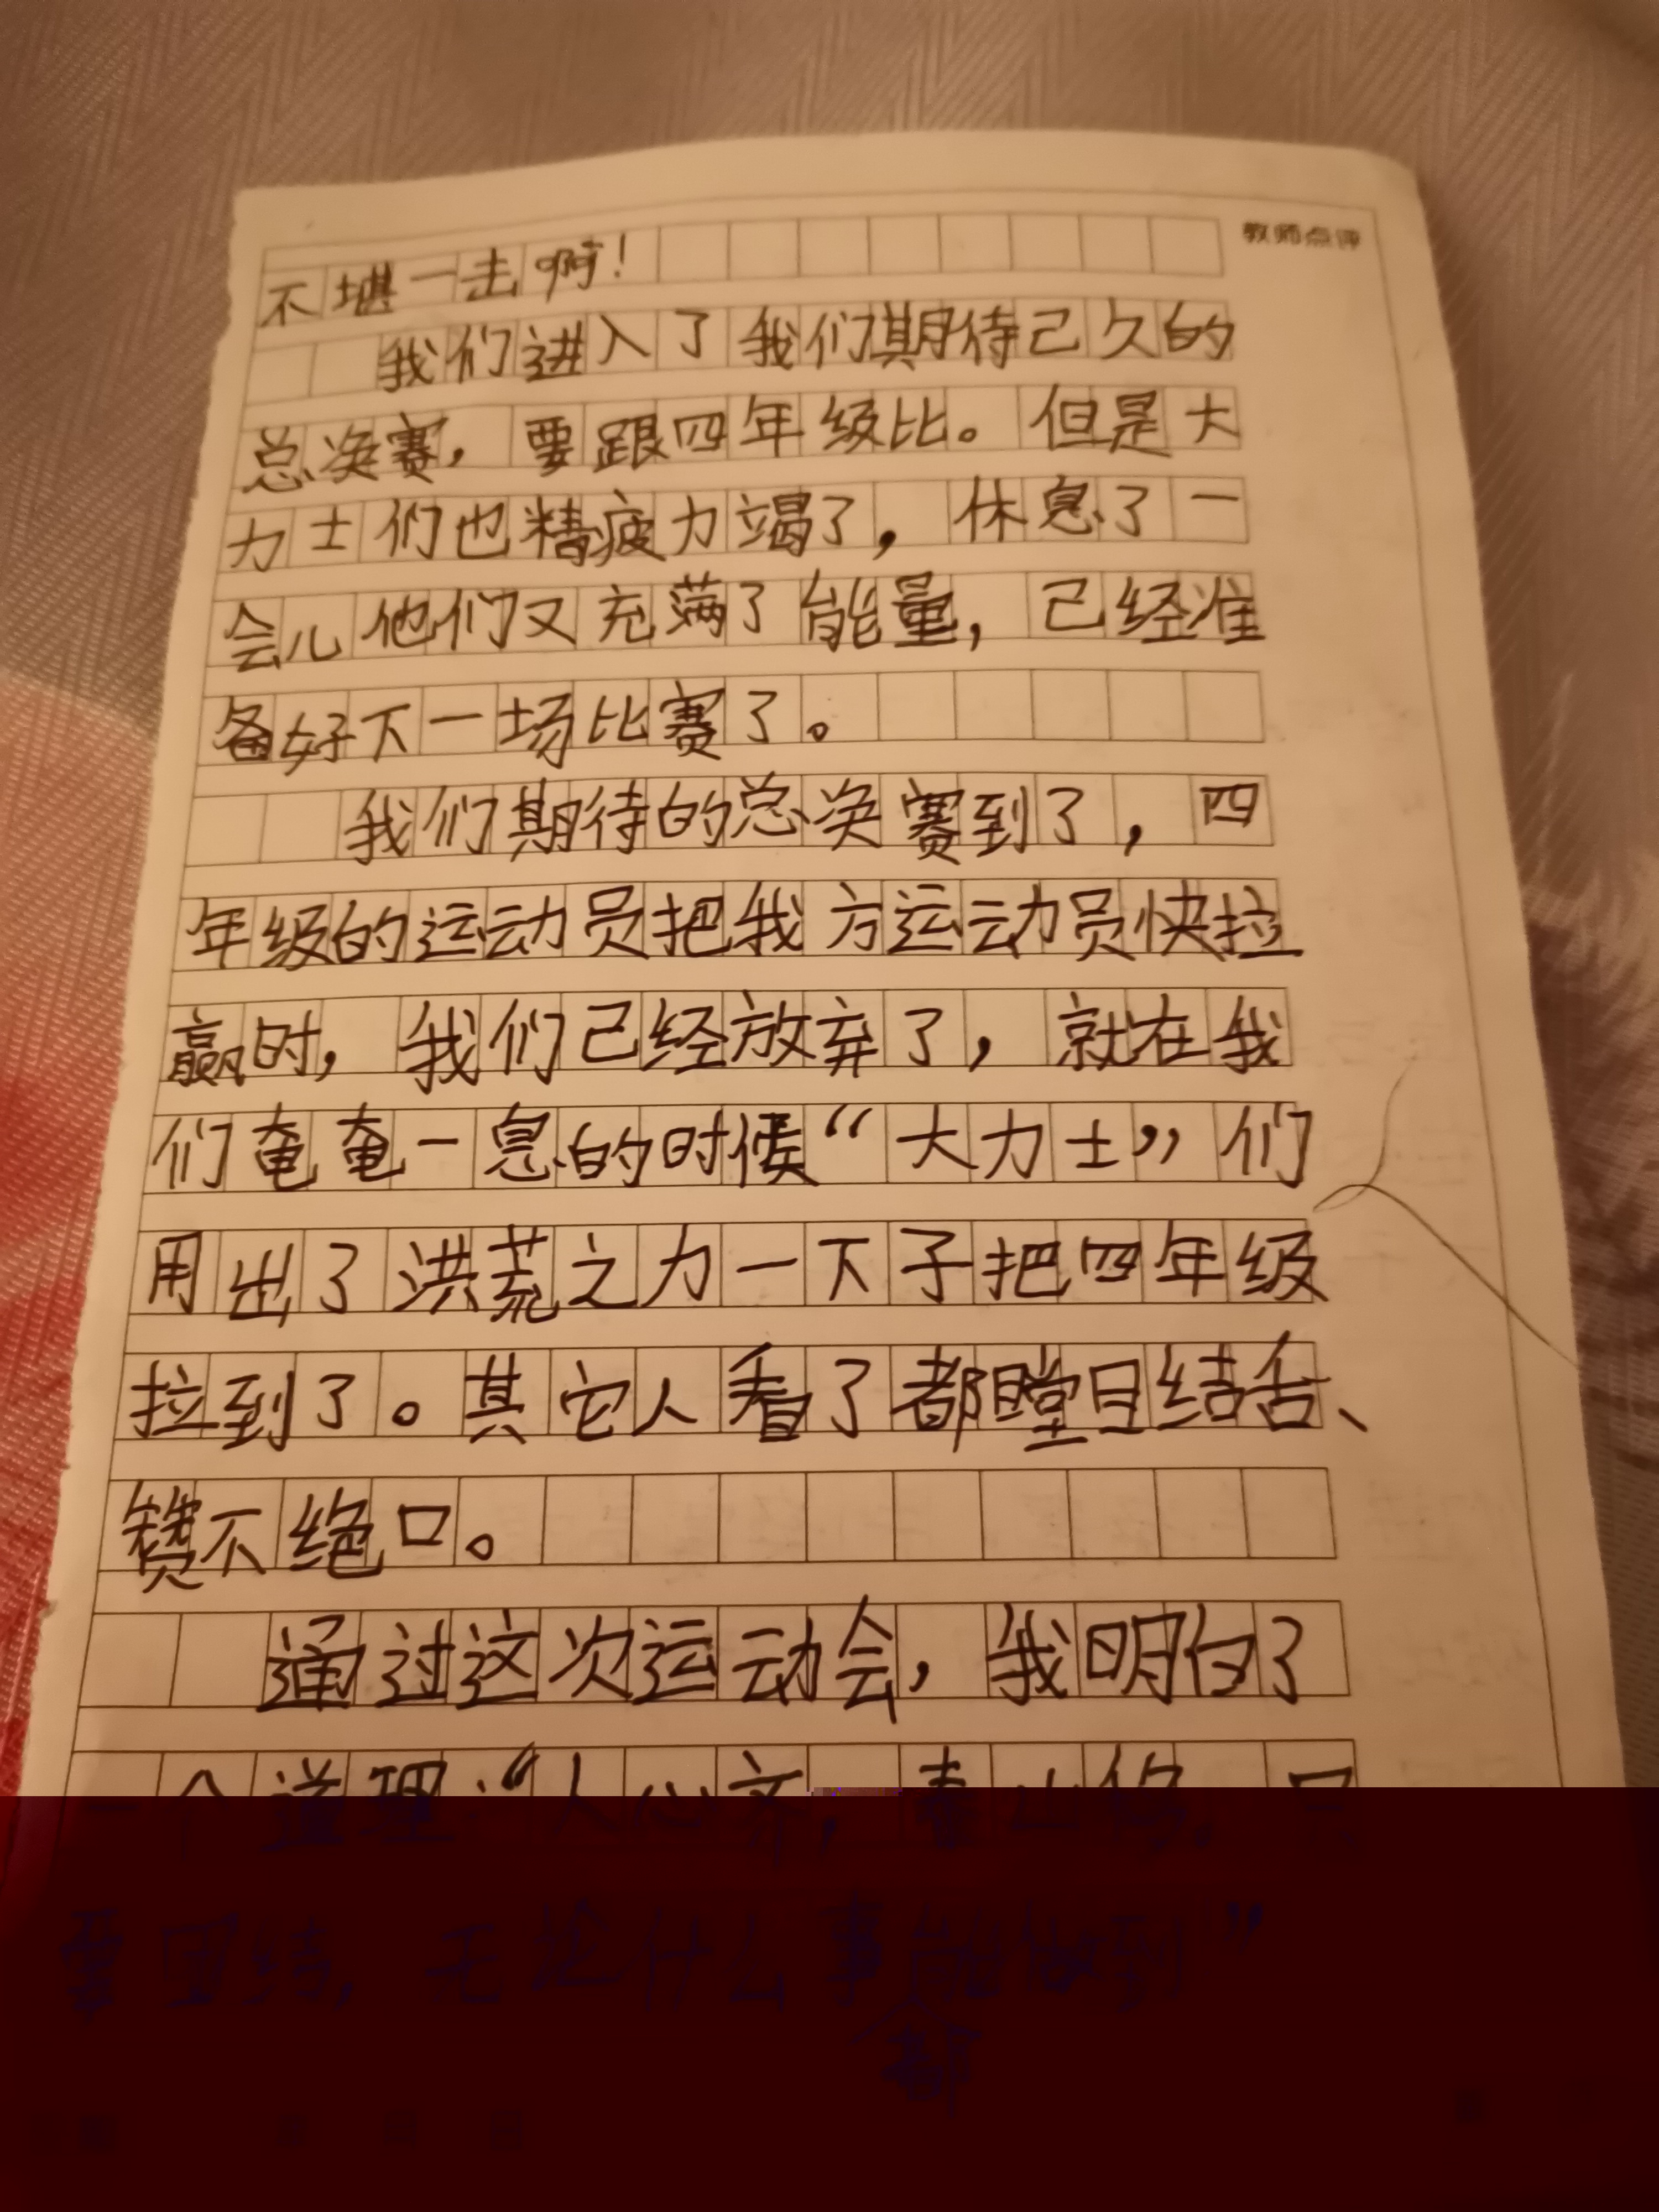 教师点评
不堪一击啊！
我们进入了我们期待己久的
总决赛，要跟四年级比。但是大
力士们也精疲力竭了，休息了一
会儿他们又充满了能量，己经准
备好下一场比赛了。
我们期待的总决赛到了，四
年级的运动员把我方运动员快拉
赢时，我们己经放弃了，就在我
们奄奄一息的时候“大力士”们
用出了洪荒之力一下子把四年级
拉到了。其它人看了都瞠目结舌、
赞不绝口。
通过这次运动会，我明白了
一个道理：“人心齐，泰山移。只
要团结，无论什么事都能做到”